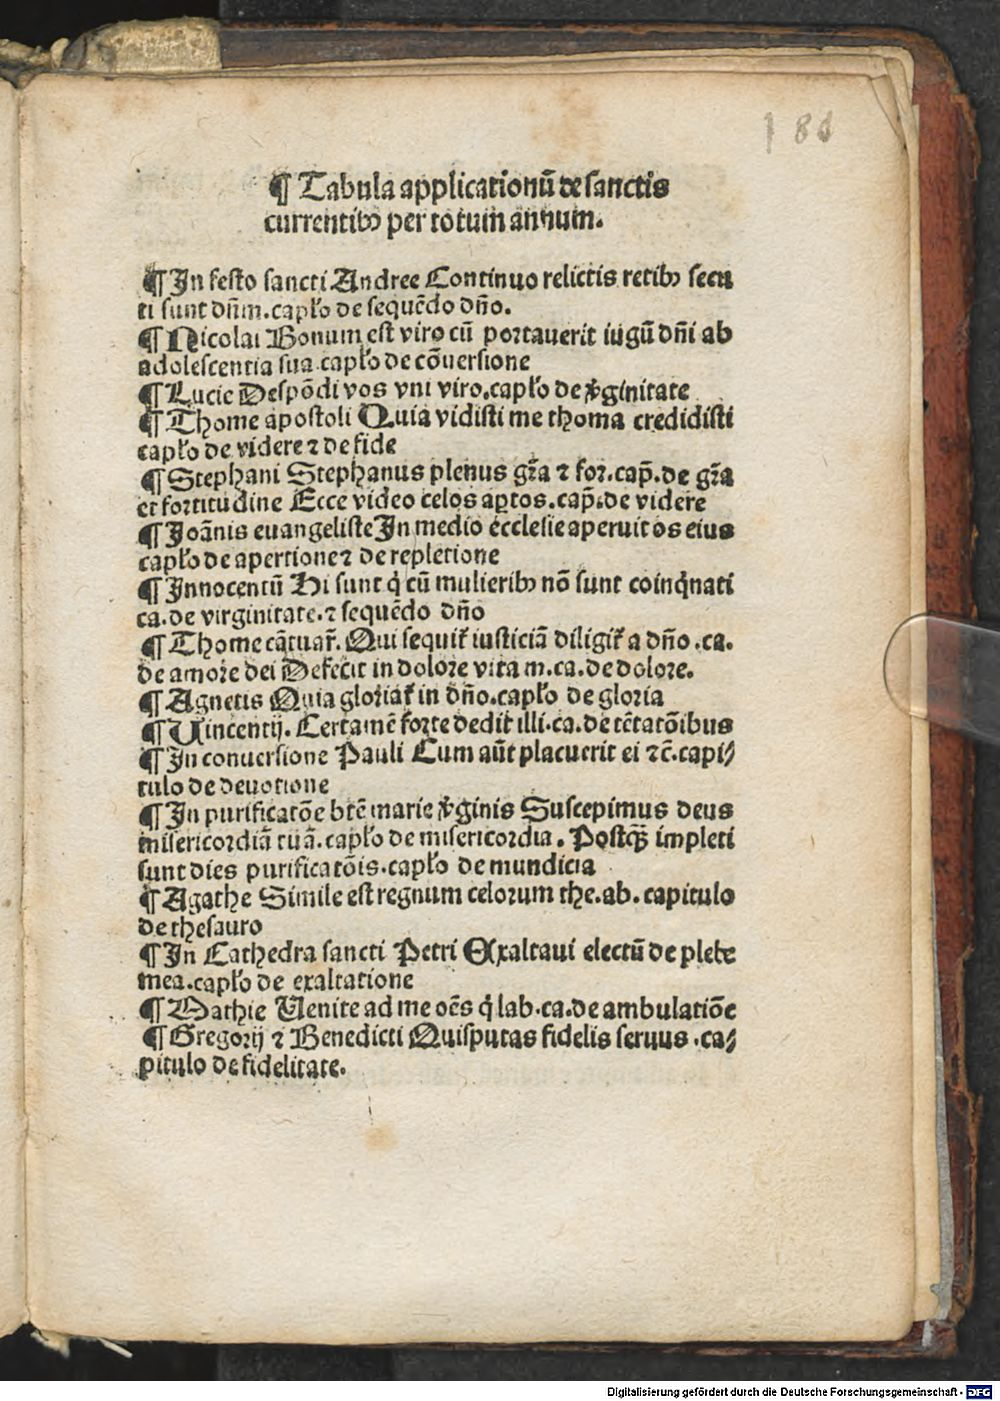 181
¶ Tabula applicationū de sanctis
currentibꝰ per totum annum.
¶ In festo sancti Andree Continuo relictis retibꝰ secu
ti sunt dñm. capło de sequēdo dño.
¶ Nicolai Bonum est viro cū portauerit iugū dñi ab
adolescentia sua. capło de cōuersione
¶ Lucie Despōdi vos vni viro. capło de v̾ginitate
¶ Thome apostoli Quia vidisti me thoma credidisti
capło de videre ⁊ de fide
¶ Stephani Stephanus plenus gr̄a ⁊ for. cap̄. de gr̄a
et fortitudine Ecce video celos aꝑtos. cap̄. de videre
¶ Joānis euangeliste In medio ecclesie aperuit os eius
capło de apertione ⁊ de repletione
¶ Innocentū Hi sunt q̇ cū mulieribꝰ nō sunt coinq̇nati
ca. de virginitate. ⁊ sequēdo dño
¶ Thome cātuar̄. Qui sequit̃ iusticiā diligit̃ a dño. ca.
de amore dei Defecit in dolore vita m. ca. de dolore.
¶ Agnetis Quia gloriat̃ in dño. capło de gloria
¶ Uincentij. Certamē forte dedit illi. ca. de tētatōibus
¶ In conuersione Pauli Cum aūt placuerit ei ⁊c̄. capi⸗
tulo de deuotione
¶ In purificatōe btē marie v̾ginis Suscepimus deus
misericordiā tuā. capło de misericordia. Postꝙ̄ impleti
sunt dies purificatōis. capło de mundicia
¶ Agathe Simile est regnum celorum the. ab. capitulo
de thesauro
¶ In Cathedra sancti Petri Exaltaui electū de plebe
mea. capło de exaltatione
¶ Mathie Uenite ad me oēs q̇ lab. ca. de ambulatiōe
¶ Gregorij ⁊ Benedicti Quisputas fidelis seruus. ca⸗
pitulo de fidelitate.
Digitalisierung gefördert durch die Deutsche Forschungsgemeinschaft - DFG